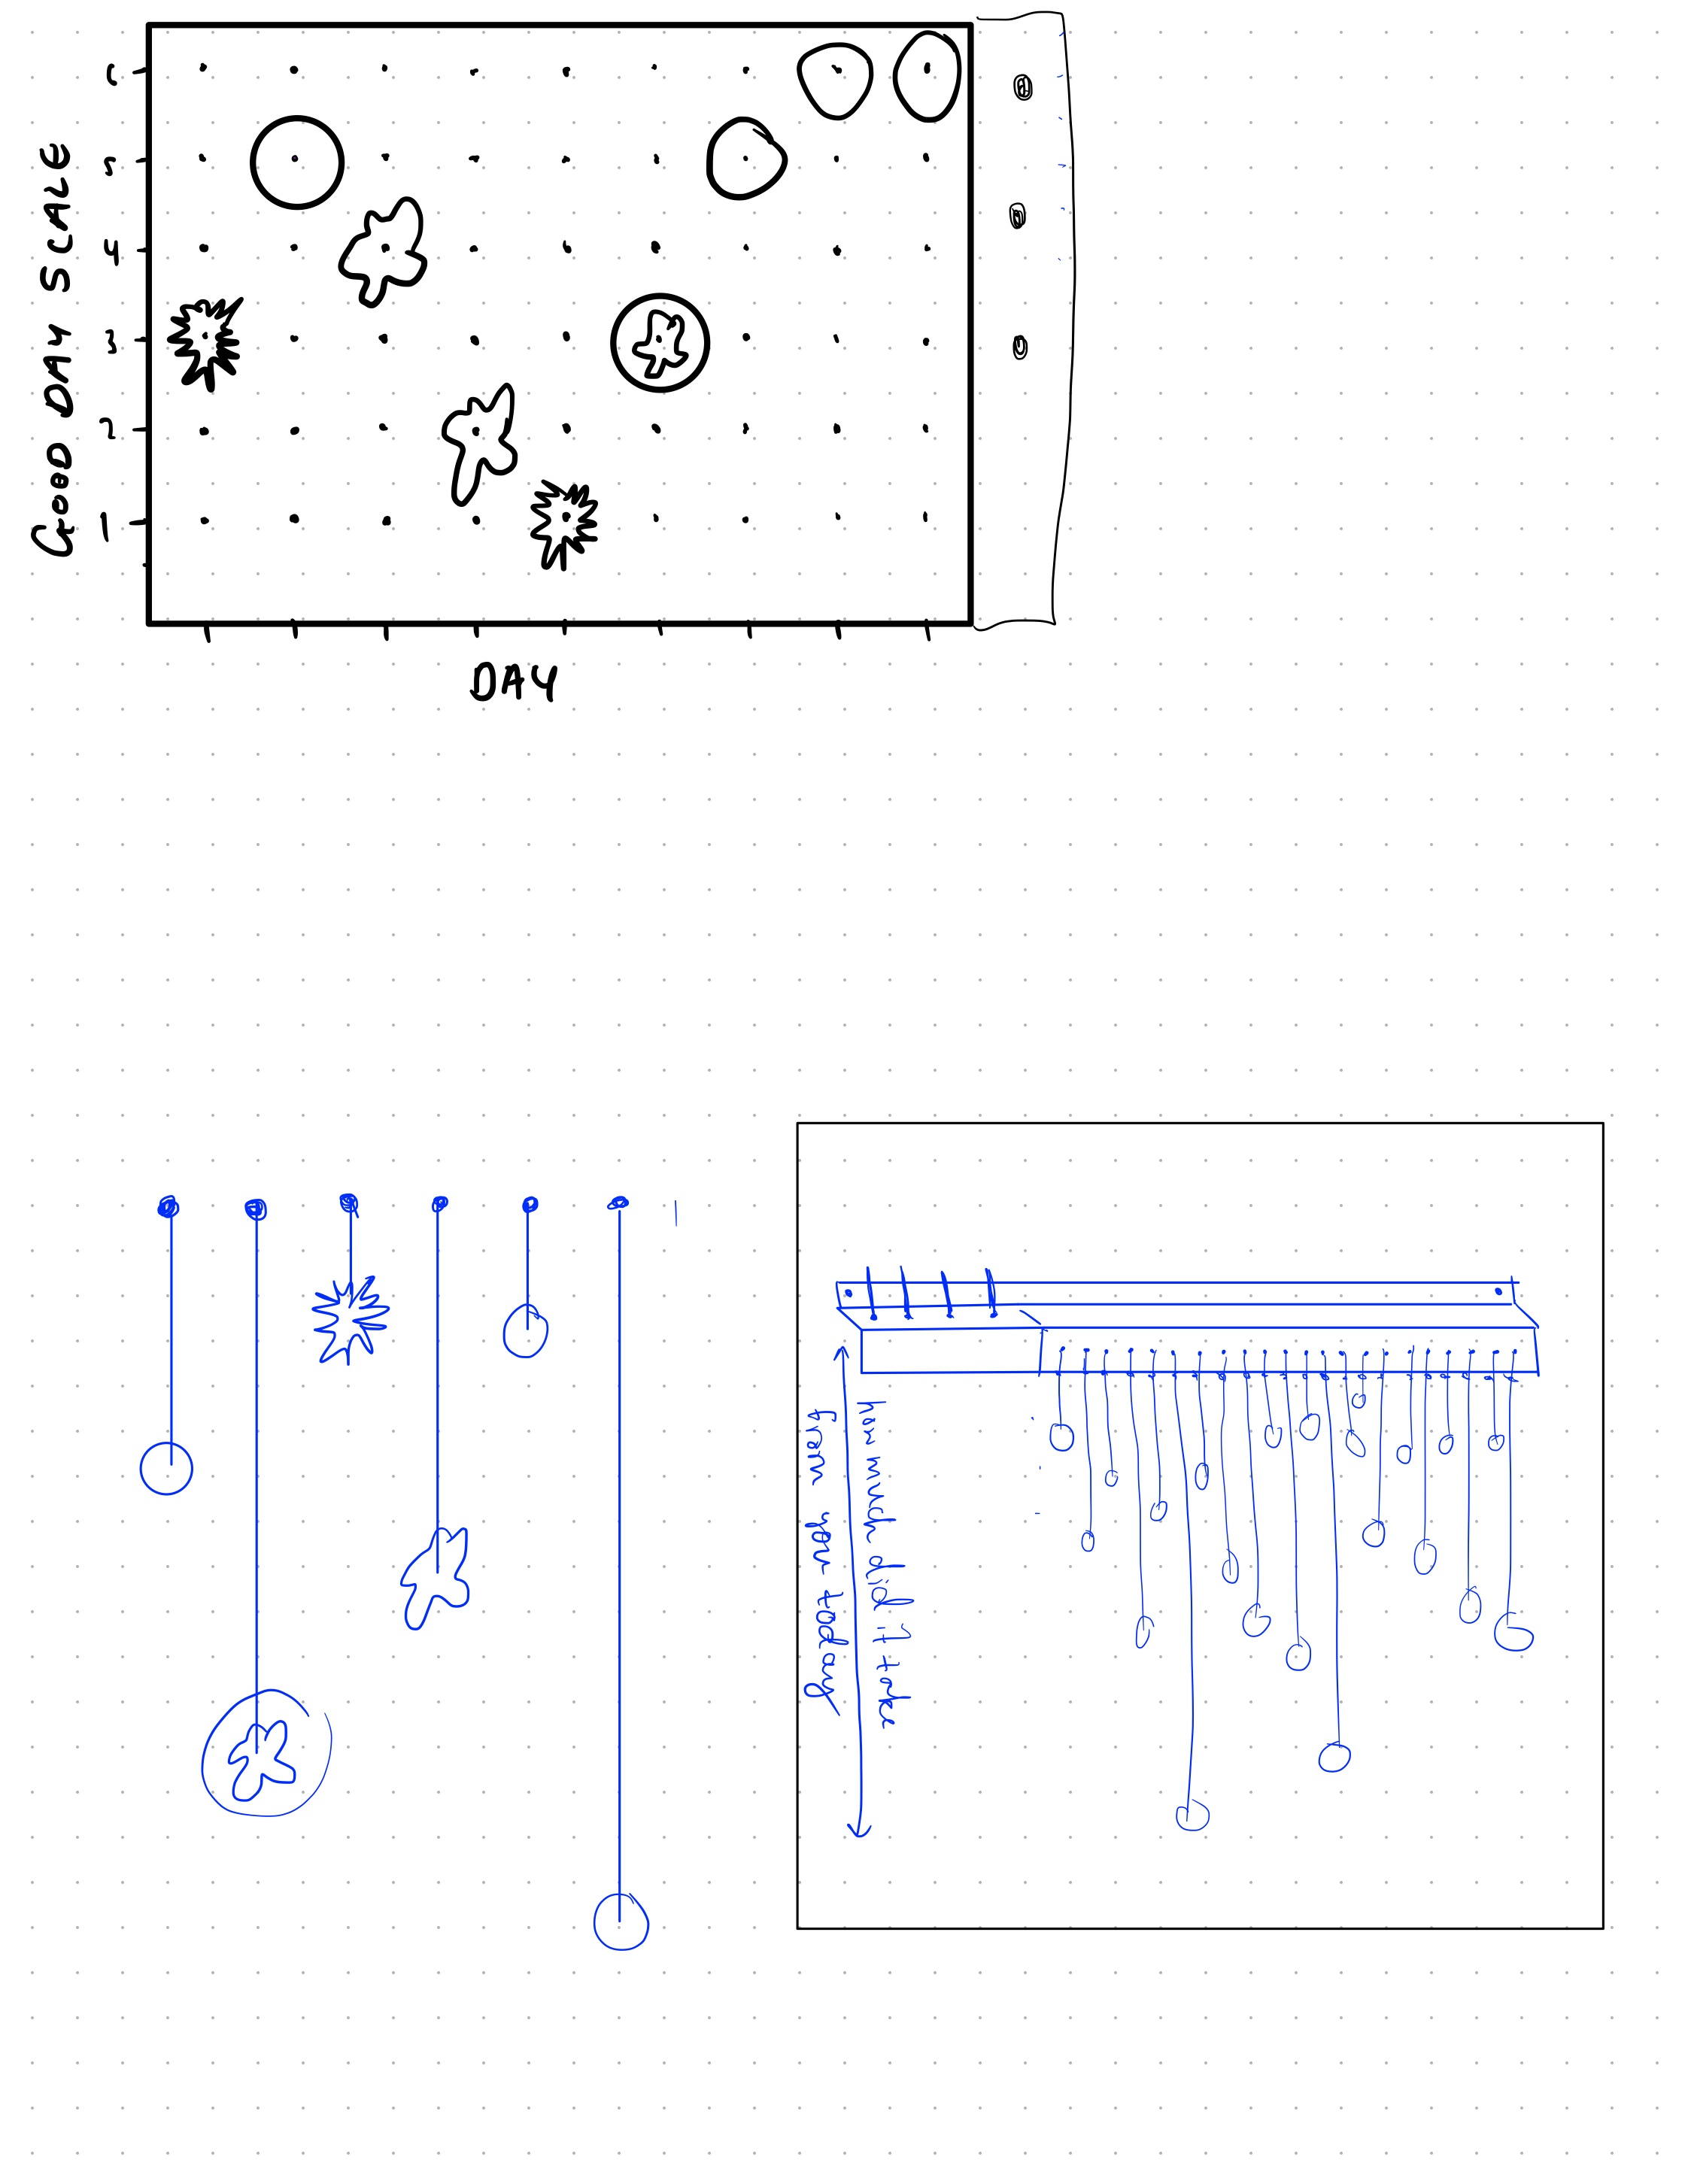 GOOD DAY SCALE
5
4
3
2
1
DAY
how much did it take
from you today